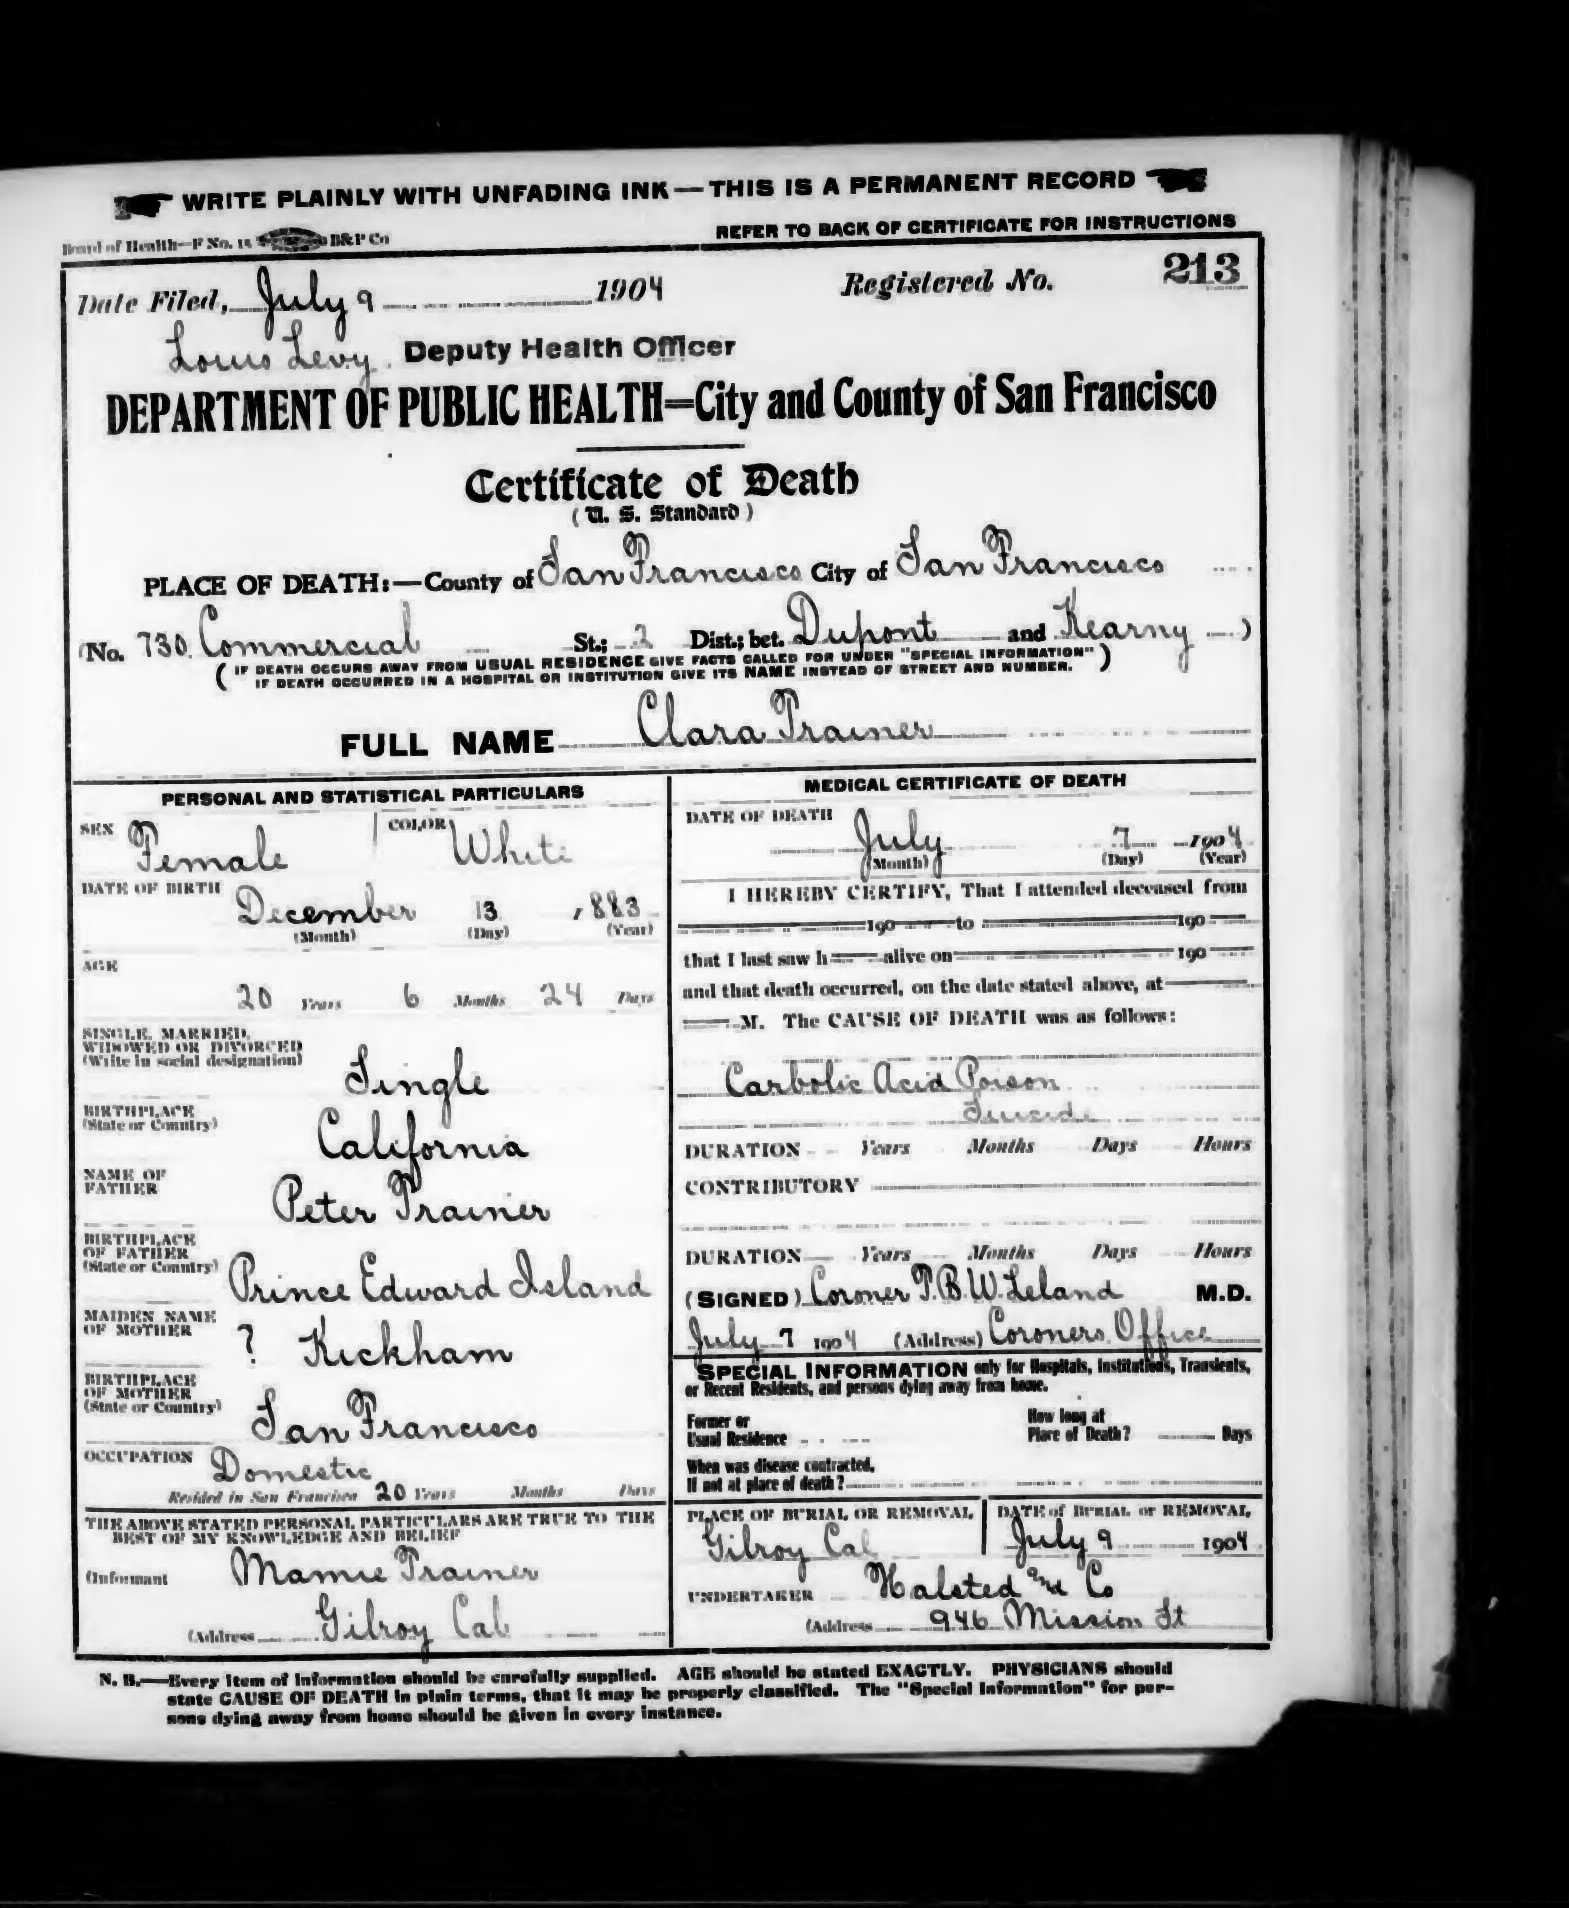 WRITE PLAINLY WITH UNFADING INK — THIS IS A PERMANENT RECORD
Board of Health—F No. 15 B&P Co
REFER TO BACK OF CERTIFICATE FOR INSTRUCTIONS
Date Filed, July 9 1904 Registered No. 213
Louis Levy. Deputy Health Officer
DEPARTMENT OF PUBLIC HEALTH=City and County of San Francisco
Certificate of Death
( U. S. Standard )
PLACE OF DEATH:—County of San Francisco City of San Francisco
(No. 730 Commercial St.; 2 Dist.; bet. Dupont and Kearny )
( IF DEATH OCCURS AWAY FROM USUAL RESIDENCE GIVE FACTS CALLED FOR UNDER "SPECIAL INFORMATION" )
IF DEATH OCCURRED IN A HOSPITAL OR INSTITUTION GIVE ITS NAME INSTEAD OF STREET AND NUMBER.
FULL NAME Clara Trainer
PERSONAL AND STATISTICAL PARTICULARS
SEX Female COLOR White
DATE OF BIRTH
December 13 , 883
(Month) (Day) (Year)
AGE
20 Years 6 Months 24 Days
SINGLE, MARRIED,
WIDOWED OR DIVORCED
(Write in social designation)
Single
BIRTHPLACE
(State or Country)
California
NAME OF
FATHER
Peter Trainer
BIRTHPLACE
OF FATHER
(State or Country)
Prince Edward Island
MAIDEN NAME
OF MOTHER
? Kickham
BIRTHPLACE
OF MOTHER
(State or Country)
San Francisco
OCCUPATION Domestic
Resided in San Francisco 20 Years Months Days
THE ABOVE STATED PERSONAL PARTICULARS ARE TRUE TO THE
BEST OF MY KNOWLEDGE AND BELIEF
(Informant Mamie Trainer
(Address Gilroy Cal
MEDICAL CERTIFICATE OF DEATH
DATE OF DEATH
July 7 1904
(Month) (Day) (Year)
I HEREBY CERTIFY, That I attended deceased from
190 to 190
that I last saw h alive on 190
and that death occurred, on the date stated above, at
M. The CAUSE OF DEATH was as follows:
Carbolic Acid Poison
Suicide
DURATION Years Months Days Hours
CONTRIBUTORY
DURATION Years Months Days Hours
(SIGNED) Coroner T.B.W. Leland M.D.
July 7 1904 (Address) Coroners Office
SPECIAL INFORMATION only for Hospitals, Institutions, Transients,
or Recent Residents, and persons dying away from home.
Former or
Usual Residence
How long at
Place of Death? Days
When was disease contracted,
If not at place of death?
PLACE OF BURIAL OR REMOVAL
Gilroy Cal
DATE of BURIAL or REMOVAL
July 9 1904
UNDERTAKER Halsted and Co
(Address 946 Mission St
N. B.—Every item of information should be carefully supplied. AGE should be stated EXACTLY. PHYSICIANS should
state CAUSE OF DEATH in plain terms, that it may be properly classified. The "Special Information" for per-
sons dying away from home should be given in every instance.